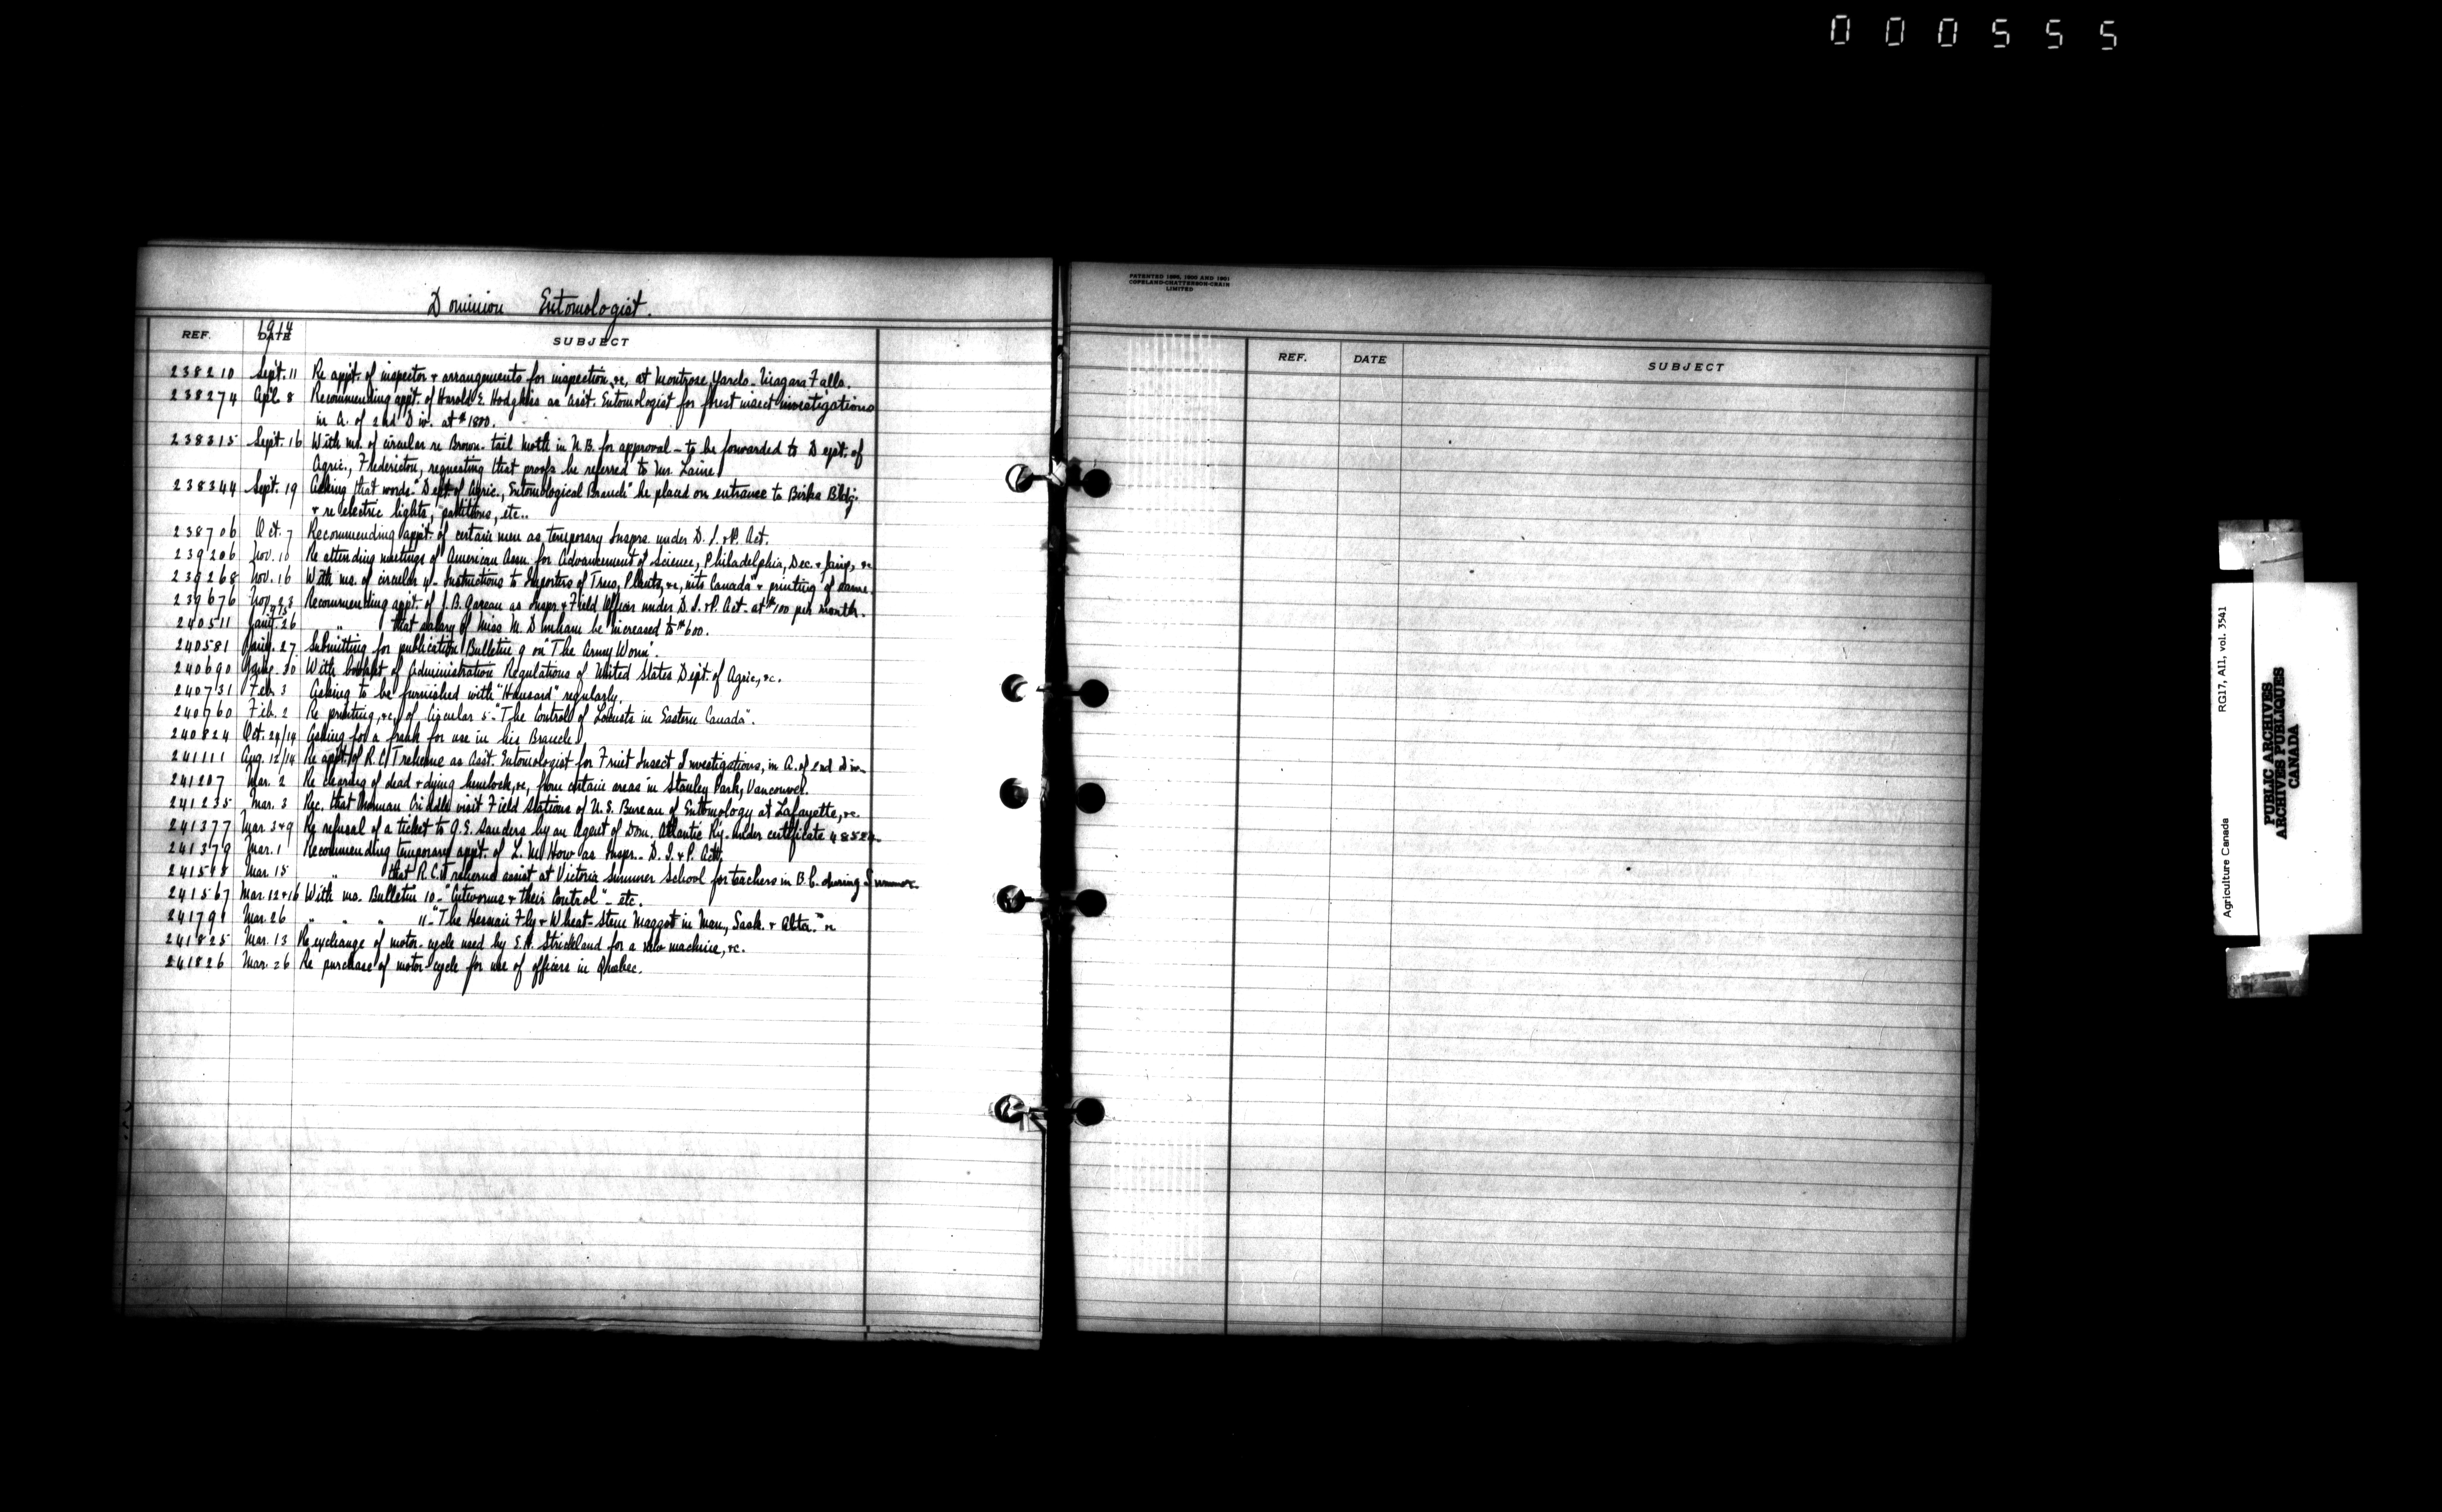 000555
Dominion Entomologist.
REF. DATE SUBJECT
1914
238210 Sept. 11 Re appt. of inspector & arrangements for inspection, &c, at Montrose Yards - Niagara Falls.
238274 Apl. 8 Recommending appt. of Harold E. Hodgkiss as Asst. Entomologist for forest insect investigations
in A. of 2nd Div. at $1800.
238315 Sept. 16 With ms. of circular re Brown-tail Moth in N.B. for approval - to be forwarded to Dept. of
Agric., Fredericton, requesting that proofs be referred to Mr.
238344 Sept. 19 Asking that words "Dept. of Agric., Entomological Branch" be placed on entrance to Birks Bldg.
& re electric lights, partitions, etc..
238706 Oct. 7 Recommending appt. of certain men as temporary Insprs. under D. I. & P. Act.
239206 Nov. 10 Re attending meetings of American Assn. for Advancement of Science, Philadelphia, Dec. & Jany, &c
239268 Nov. 16 With ms. of circular "Instructions to Importers of Trees, Plants, &c, into Canada" & printing of same.
239676 Nov. 23 Recommending appt. of J.B. Gareau as Inspr. & Field Officer under D. I. & P. Act - at $100 per month.
1915
240511 Jany. 26 " that salary of Miss M. Dunham be increased to $600.
240581 Jany. 27 Submitting for publication Bulletin 9 on "The Army Worm".
240690 Jany. 30 With booklet of Administration Regulations of United States Dept. of Agric, &c.
240731 Feb. 3 Asking to be furnished with "Hansard" regularly.
240760 Feb. 2 Re printing, &c, of Circular 5 - "The Control of Locusts in Eastern Canada".
240824 Oct. 29/14 Asking for a frank for use in his Branch.
241111 Aug. 12/14 Re appt. of R.C. Treherne as Asst. Entomologist for Fruit Insect Investigations, in A. of 2nd Div.
241207 Mar. 2 Re clearing of dead & dying hemlock, &c, from certain areas in Stanley Park, Vancouver.
241235 Mar. 3 Rec. that Norman Criddle visit Field Stations of U.S. Bureau of Entomology at Lafayette, &c.
241377 Mar. 3 & 9 Re refusal of a ticket to G.E. Sanders by an Agent of Dom. Atlantic Ry. under certificate
241379 Mar. 1 Recommending temporary appt. of L. as Inspr. - D. I. & P. Act.
Mar. 15 " that R.C. Treherne assist at Victoria Summer School for teachers in B.C. during Summer.
241567 Mar. 12 & 16 With ms. Bulletin 10 - "Cutworms & their Control" - etc.
241791 Mar. 26 " " " 11 - "The Hessian Fly & Wheat-Stem Maggot in Man., Sask. & Alta." &c
241825 Mar. 13 Re exchange of motor-cycle used by E.H. Strickland for a new machine, &c.
241826 Mar. 26 Re purchase of motor-cycle for use of officers in Quebec.
PATENTED 1895, 1900 AND 1901
COPELAND-CHATTERSON-CRAIN
LIMITED
REF. DATE SUBJECT
Agriculture Canada RG17, A11, vol. 3541
PUBLIC ARCHIVES
ARCHIVES PUBLIQUES
CANADA